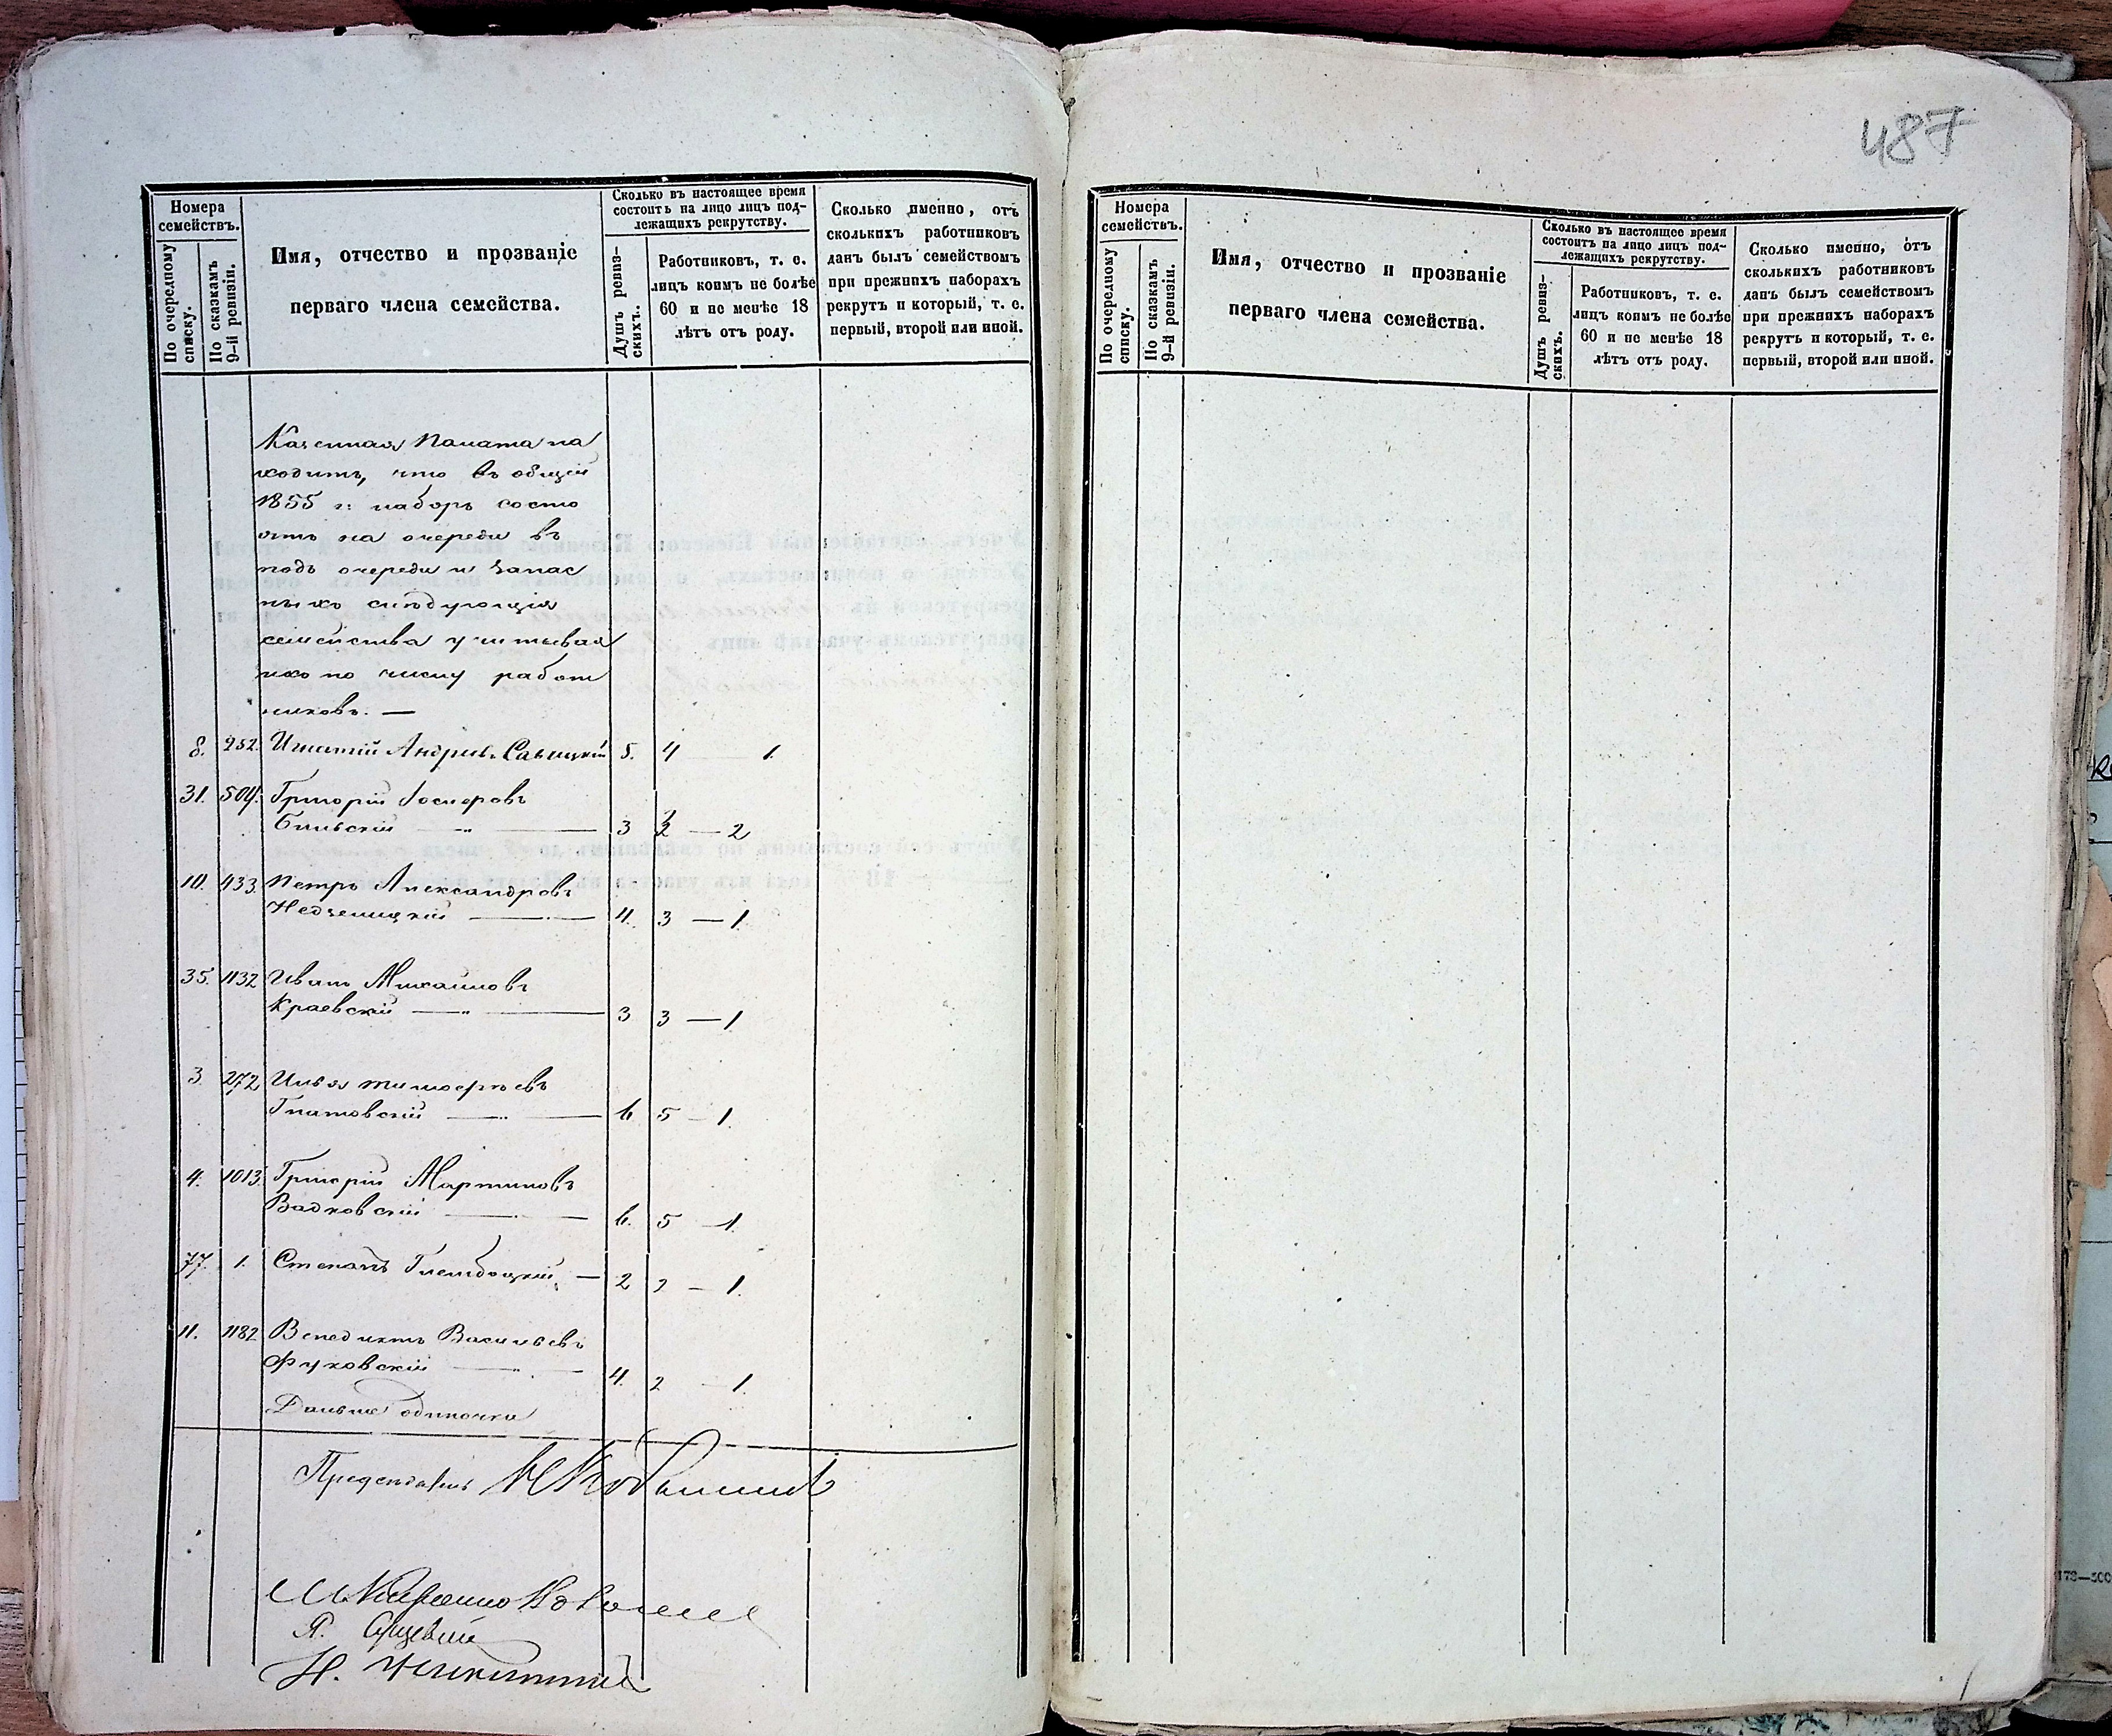 487
Номера
семействъ.
По очередному
списку.
По сказкамъ
9-й ревизіи.
Имя, отчество и прозваніе
перваго члена семейства.
Сколько въ настоящее время
состоитъ на лицо лицъ под-
лежащихъ рекрутству.
Душъ ревиз-
скихъ.
Работниковъ, т. е.
лицъ коимъ не болѣе
60 и не менѣе 18
лѣтъ отъ роду.
Сколько именно, отъ
сколькихъ работниковъ
данъ былъ семействомъ
при прежнихъ наборахъ
рекрутъ и который, т. е.
первый, второй или иной.
Казенная Палата на
ходитъ, что въ общій
1855 г: наборъ состо
ятъ на очереди въ
подъ очереди и запас
ныхъ слѣдующія
семейства учитывая
ихъ по числу работ
никовъ. —
8. 252. Игнатій Андріев. Савицкій 5. 4 — 1.
31. 504. Григорій
Бильскій — 3 2 — 2
10. 433 Петръ Александровъ
Недзелицкій — 4. 3 — 1.
35. 1132 Иванъ Михайловъ
Краевскій — 3 3 — 1.
3. 272 Илья Тимоѳеевъ
Гнатовскій — 6 5 — 1.
4. 1013. Григорій Мартиновъ
Вадковскій — 6. 5 — 1.
77. 1. Степанъ Глембоцкій — 2 2 — 1.
11. 1182 Венедиктъ Васильевъ
Фуховскій — 4. 2 — 1.
Дальше одиночки
Номера
семействъ.
По очередному
списку.
По сказкамъ
9-й ревизіи.
Имя, отчество и прозваніе
перваго члена семейства.
Сколько въ настоящее время
состоитъ на лицо лицъ под-
лежащихъ рекрутству.
Душъ ревиз-
скихъ.
Работниковъ, т. е.
лицъ коимъ не болѣе
60 и не менѣе 18
лѣтъ отъ роду.
Сколько именно, отъ
сколькихъ работниковъ
данъ былъ семействомъ
при прежнихъ наборахъ
рекрутъ и который, т. е.
первый, второй или иной.